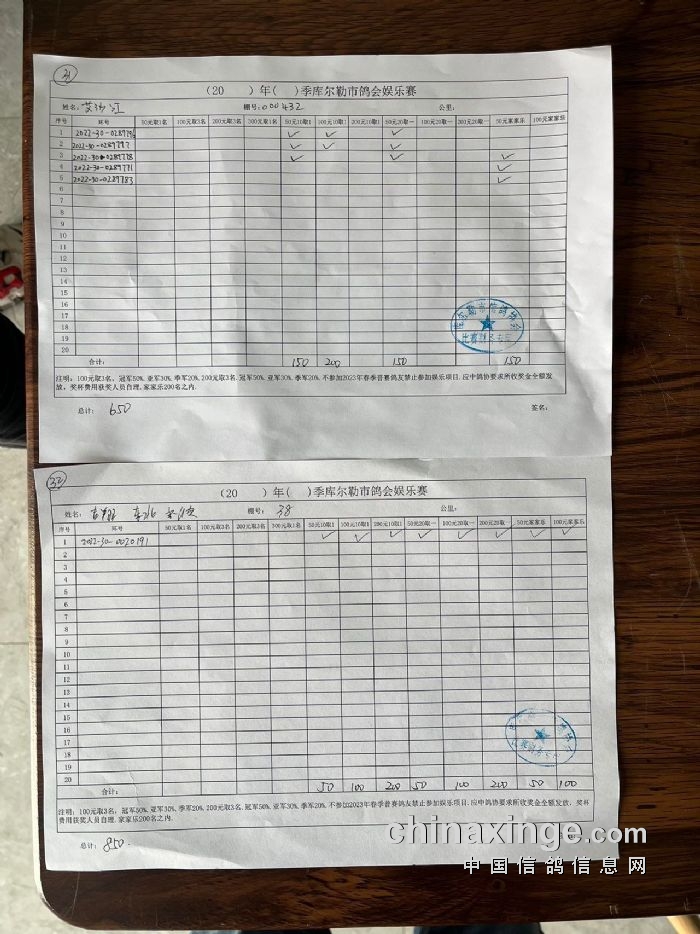 31
(20 ）年（ ）季库尔勒市鸽会娱乐赛
姓名： 棚号：000432 公里：
序号 环号 50元取1名 100元取3名 200元取3名 300元取1名 50元10取1 100元10取1 200元10取1 50元20取一 100元20取一 200元20取一 50元家家乐 100元家家乐
1 2022-30-0289796 ✓ ✓ ✓
2 2022-30-0289797 ✓ ✓ ✓
3 2022-30-0289778 ✓ ✓ ✓
4 2022-30-0289771 ✓
5 2022-30-0289783 ✓
6
7
8
9
10
11
12
13
14
15
16
17
18
19
20
合计： 150 200 150 150
注明：100元取3名，冠军50%,亚军30%,季军20%,200元取3名,冠军50%,亚军30%,季军20%,不参加2023年春季普赛鸽友禁止参加娱乐项目,应中鸽协要求所收奖金全额发放，奖杯费用获奖人员自理,家家乐200名之内.
总计：650 签名：
32
(20 ）年（ ）季库尔勒市鸽会娱乐赛
姓名： 棚号：38 公里：
序号 环号 50元取1名 100元取3名 200元取3名 300元取1名 50元10取1 100元10取1 200元10取1 50元20取一 100元20取一 200元20取一 50元家家乐 100元家家乐
1 2022-30-0020191 ✓ ✓ ✓ ✓ ✓ ✓ ✓ ✓
2
3
4
5
6
7
8
9
10
11
12
13
14
15
16
17
18
19
20
合计： 50 100 200 50 100 200 50 100
注明：100元取3名，冠军50%,亚军30%,季军20%,200元取3名,冠军50%,亚军30%,季军20%,不参加2023年春季普赛鸽友禁止参加娱乐项目,应中鸽协要求所收奖金全额发放，奖杯费用获奖人员自理,家家乐200名之内.
总计：850.
chinaxinge.com
中国信鸽信息网